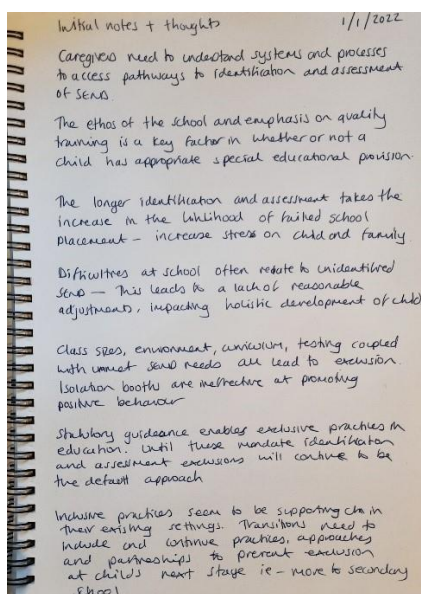 Initial notes + thoughts 1/1/2022
Caregivers need to understand systems and processes
to access pathways to identification and assessment
of SEND.
The ethos of the school and emphasis on quality
training is a key factor in whether or not a
child has appropriate special educational provision.
The longer identification and assessment takes the
increase in the liklihood of failed school
placement – increase stress on child and family.
Difficulties at school often relate to unidentified
SEND — This leads to a lack of reasonable
adjustments, impacting holistic development of child
Class sizes, environment, curriculum, testing coupled
with unmet SEND needs all lead to exclusion.
Isolation booths are ineffective at promoting
positive behaviour
Statutory guideance enables exclusive practices in
education. Until these mandate identification
and assessment exclusions will continue to be
the default approach
Inclusive practices seem to be supporting chn in
their existing settings. Transitions need to
include and continue practices, approaches
and partnerships to prevent exclusion
at child's next stage ie – move to secondary
school